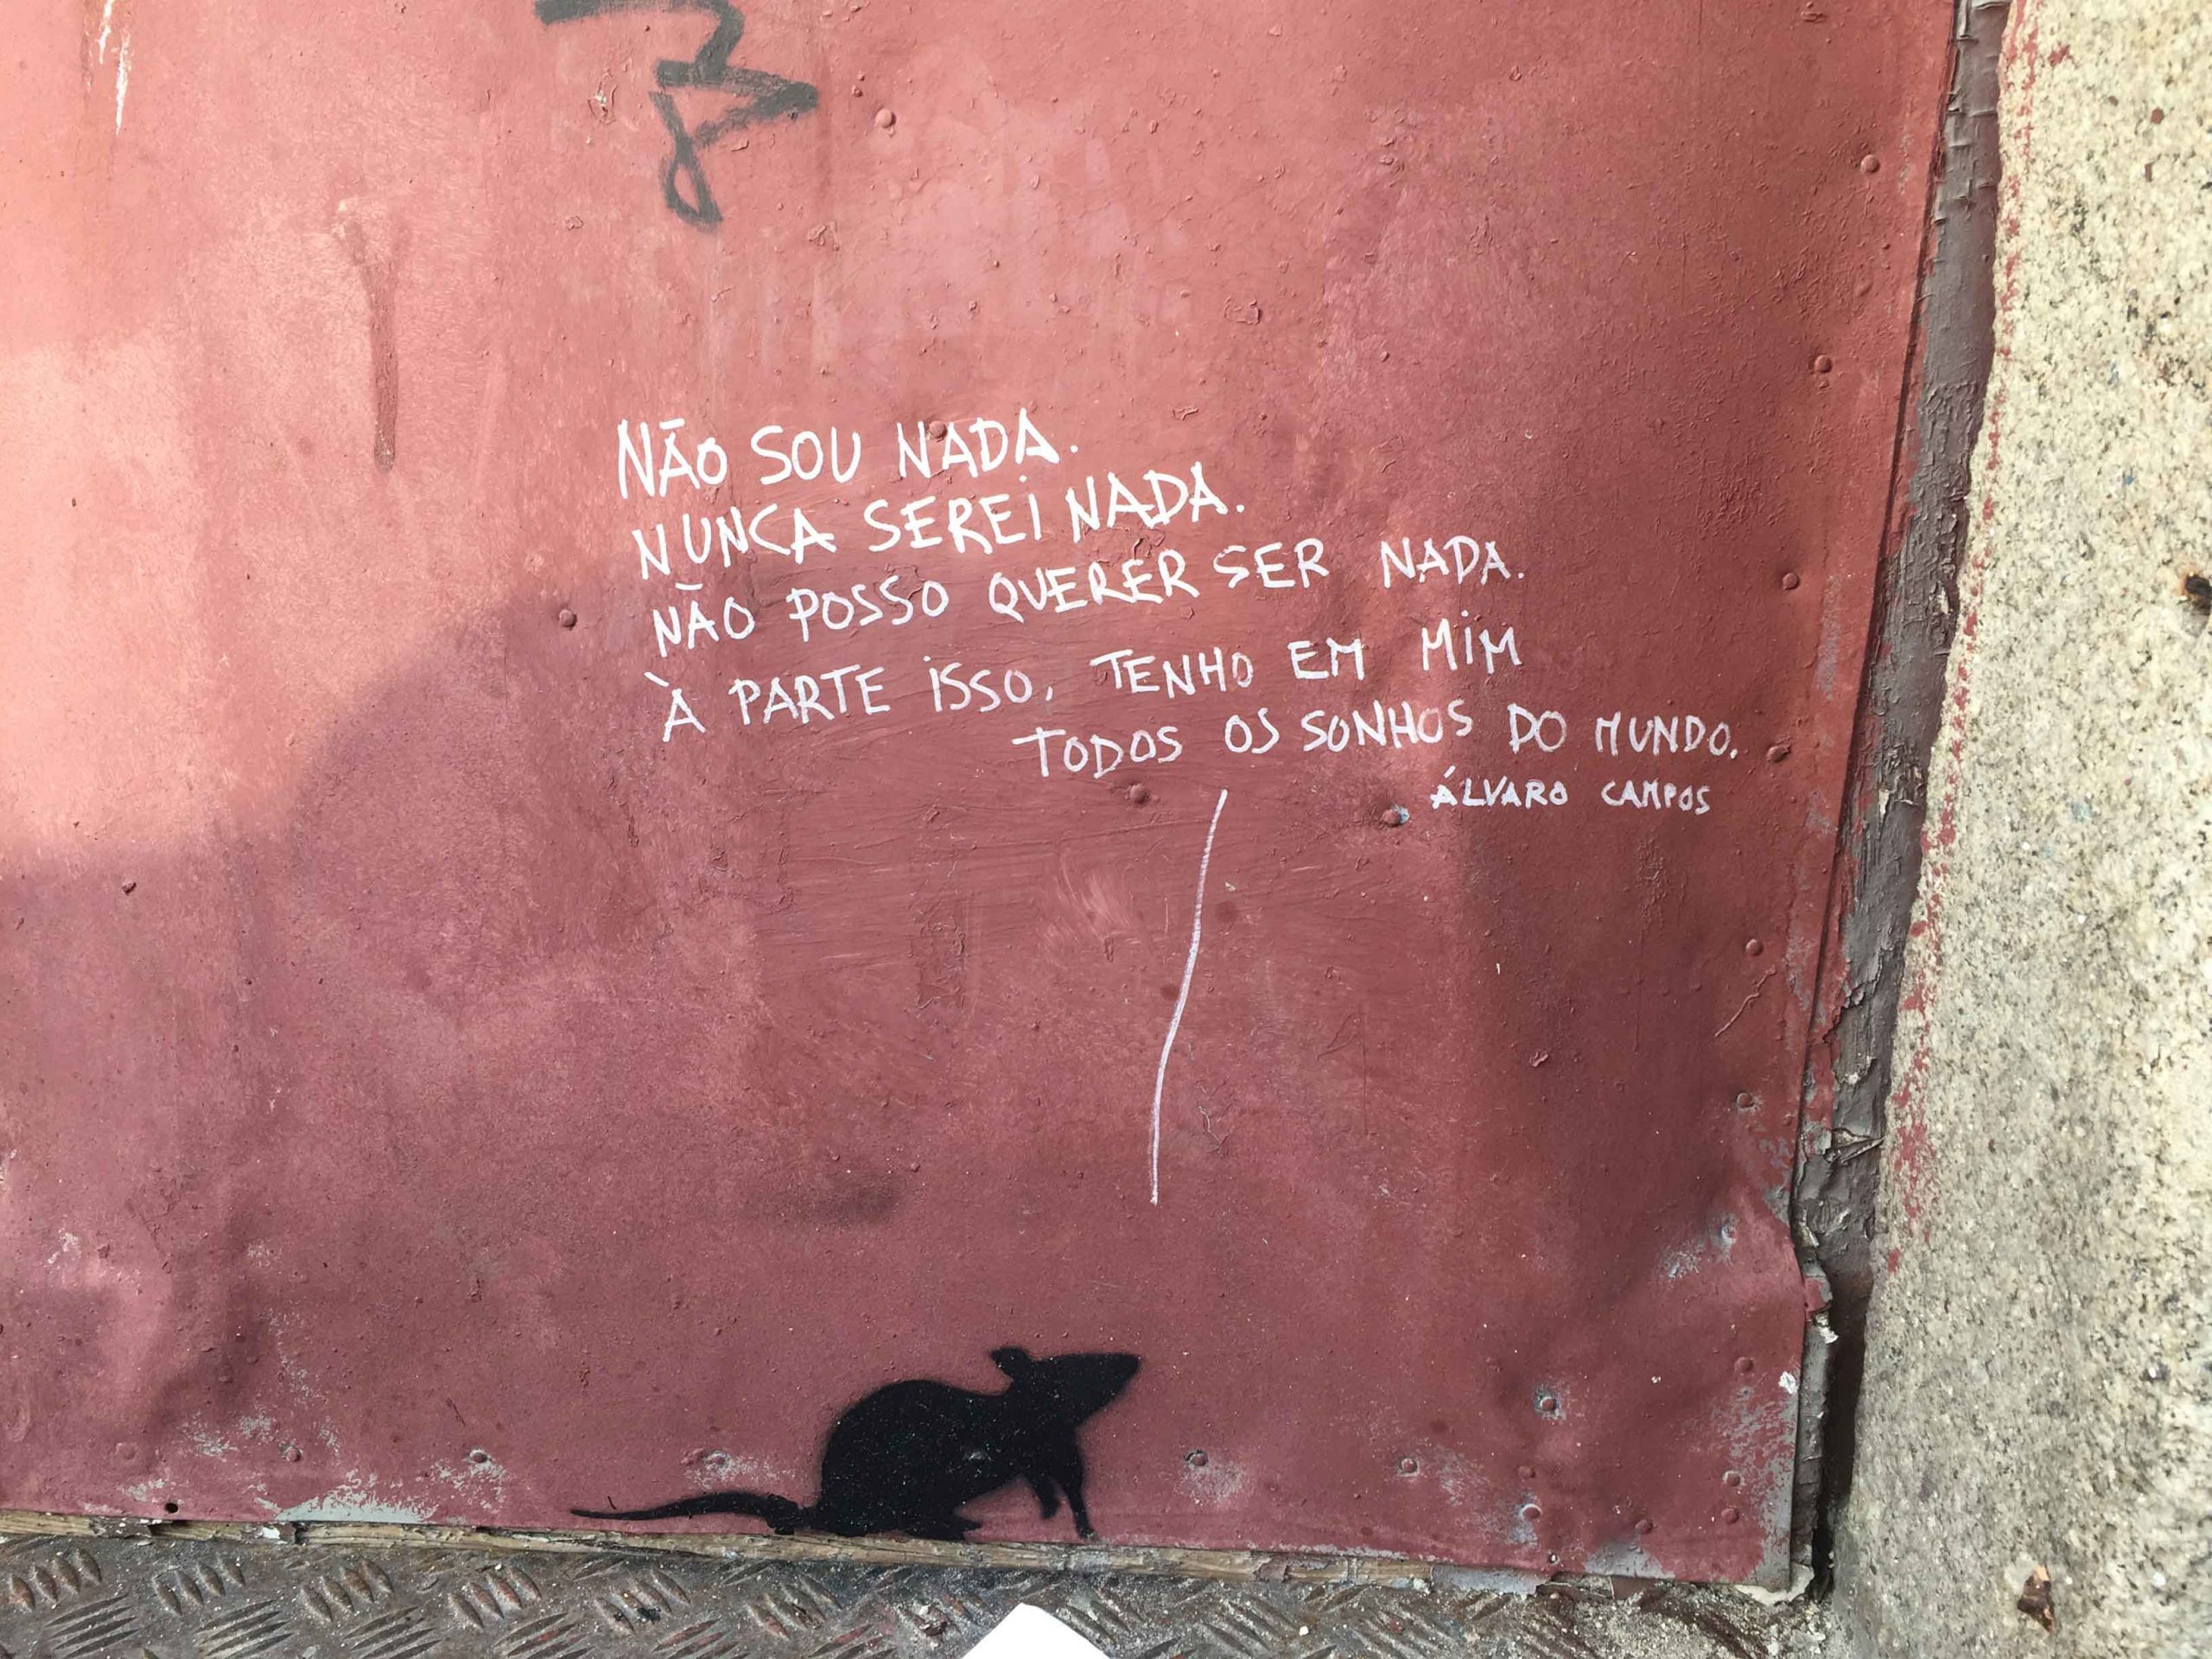 NÃO SOU NADA.
NUNCA SEREI NADA.
NÃO POSSO QUERER SER NADA.
À PARTE ISSO, TENHO EM MIM
TODOS OS SONHOS DO MUNDO.
ÁLVARO CAMPOS